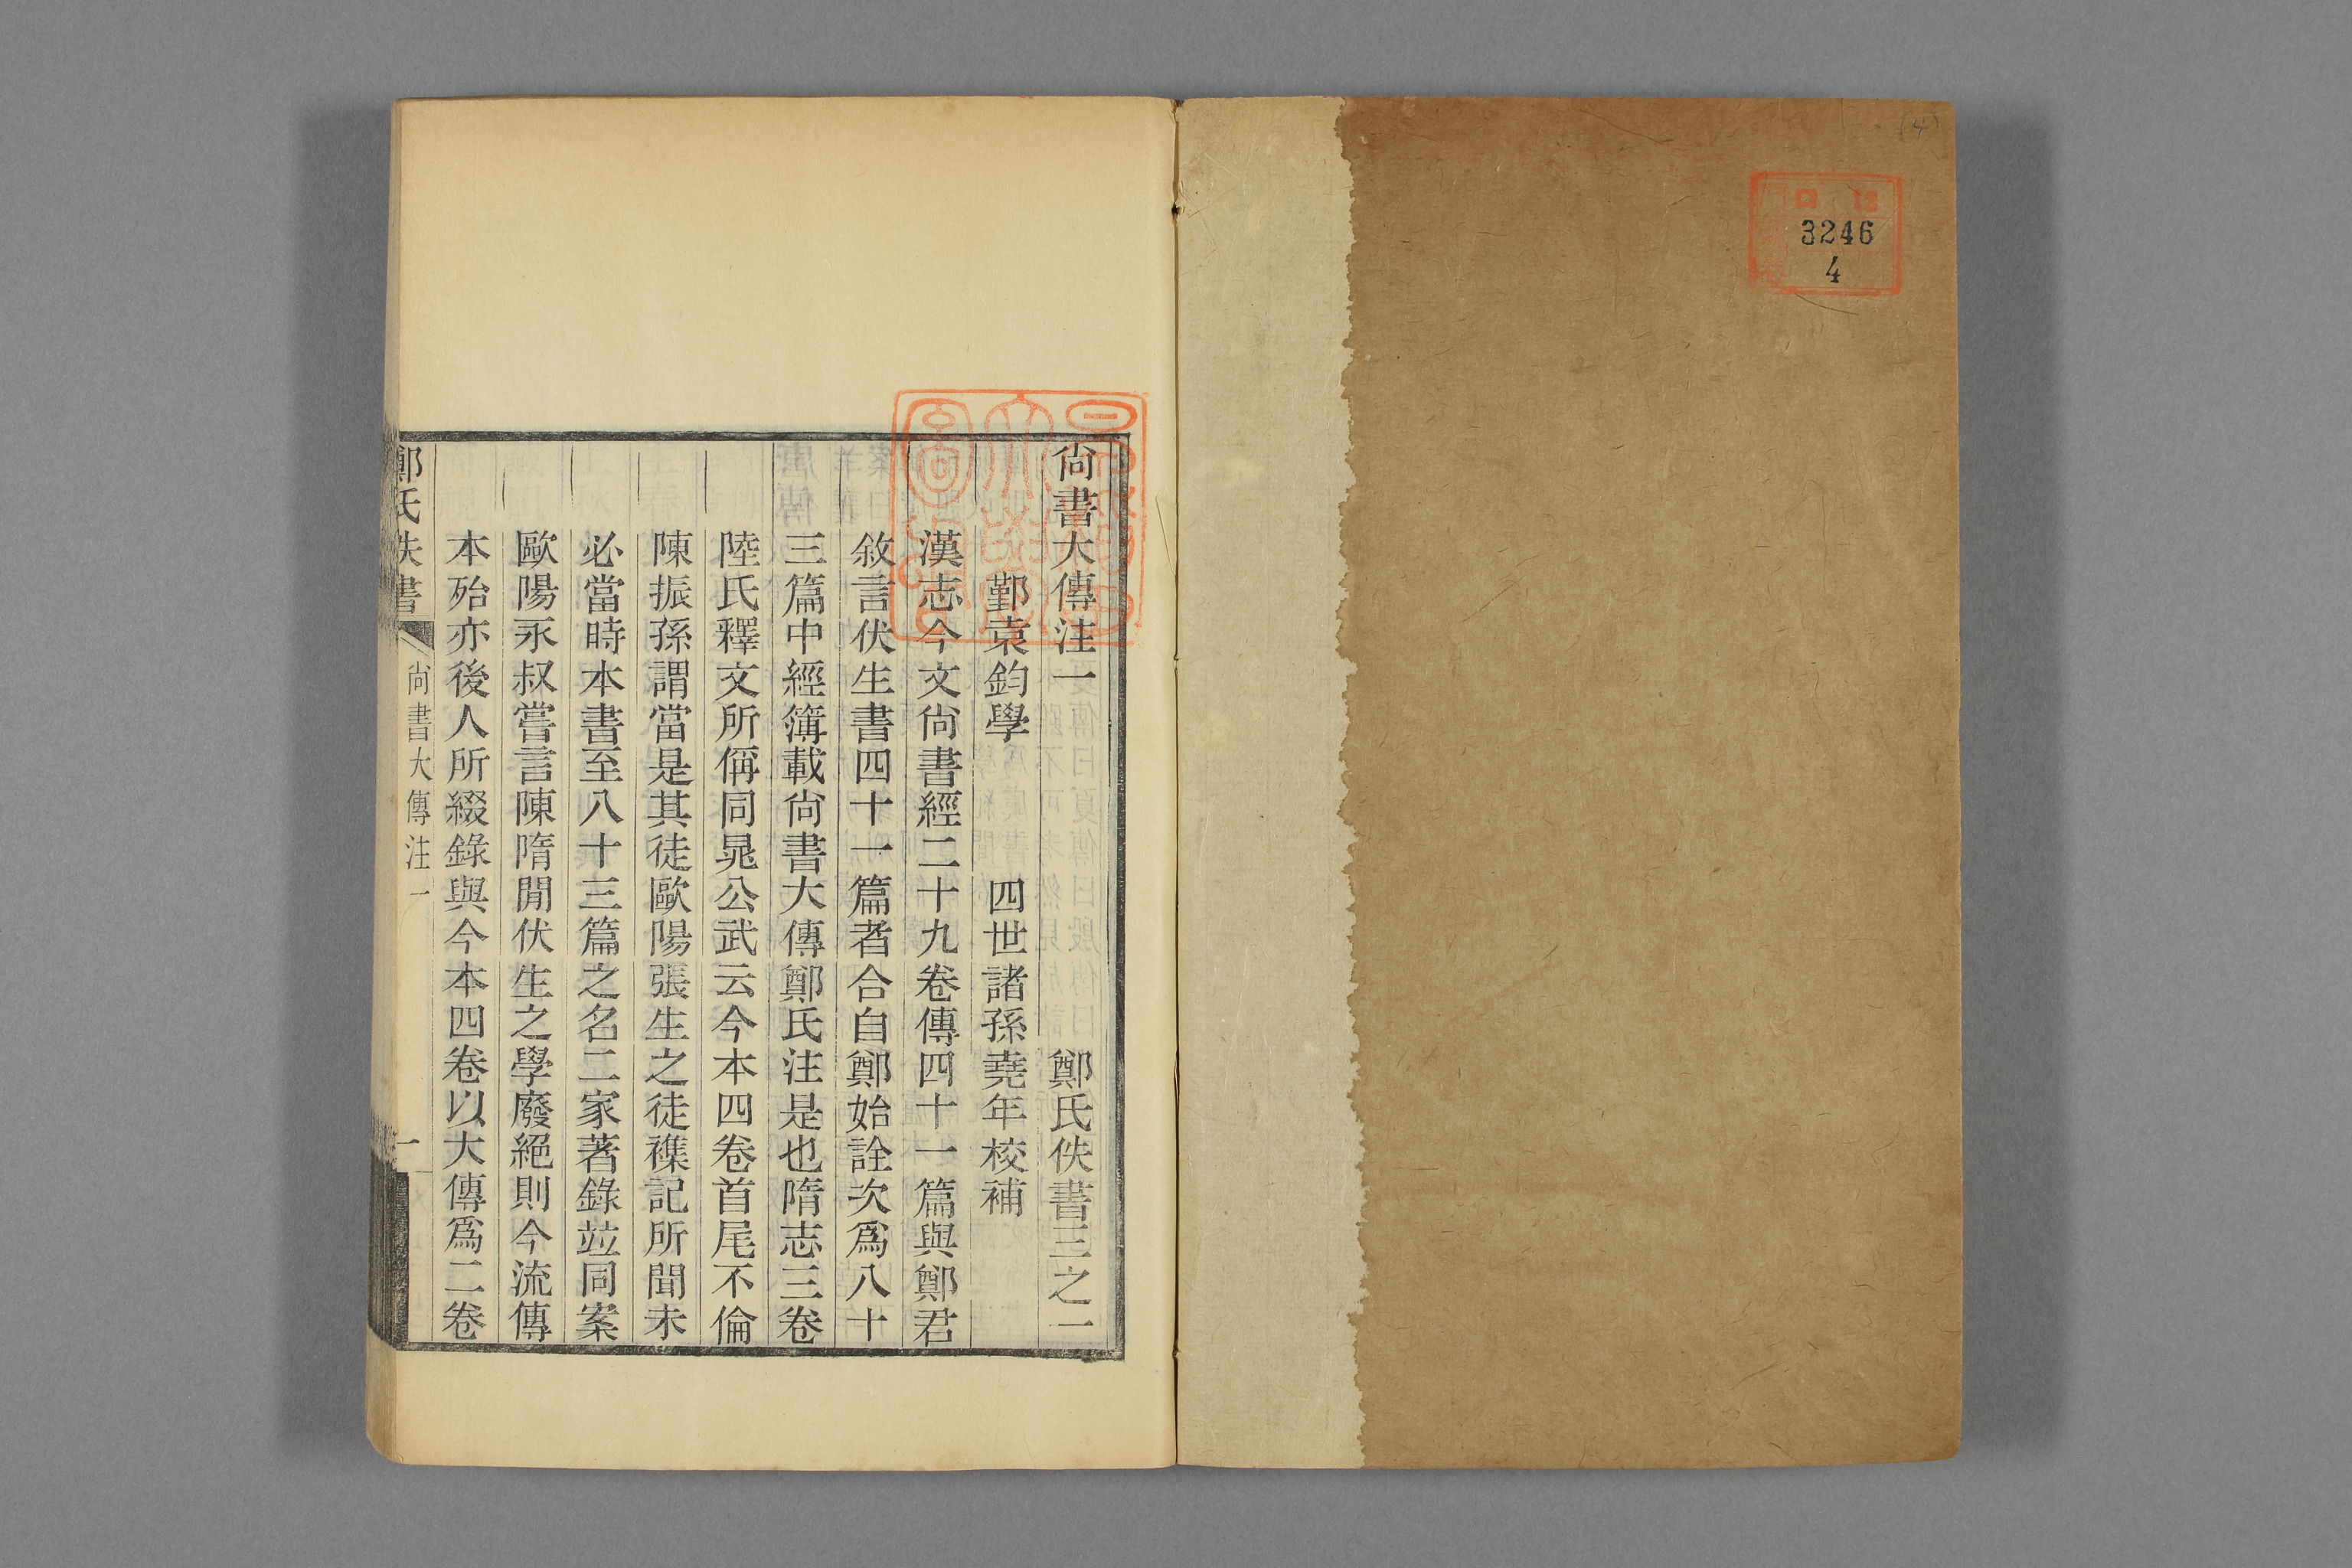 (4)
口 12
3246
4
尙書大傳注一 鄭氏佚書三之一
鄞袁鈞學 四世諸孫堯年校補
漢志今文尙書經二十九卷傳四十一篇與鄭君
敘言伏生書四十一篇者合自鄭始詮次爲八十
三篇中經簿載尙書大傳鄭氏注是也隋志三卷
陸氏釋文所偁同晁公武云今本四卷首尾不倫
陳振孫謂當是其徒歐陽張生之徒襍記所聞未
必當時本書至八十三篇之名二家著錄竝同案
歐陽永叔嘗言陳隋閒伏生之學廢絕則今流傳
本殆亦後人所綴錄與今本四卷以大傳爲二卷
鄭氏佚書 尙書大傳注一 一